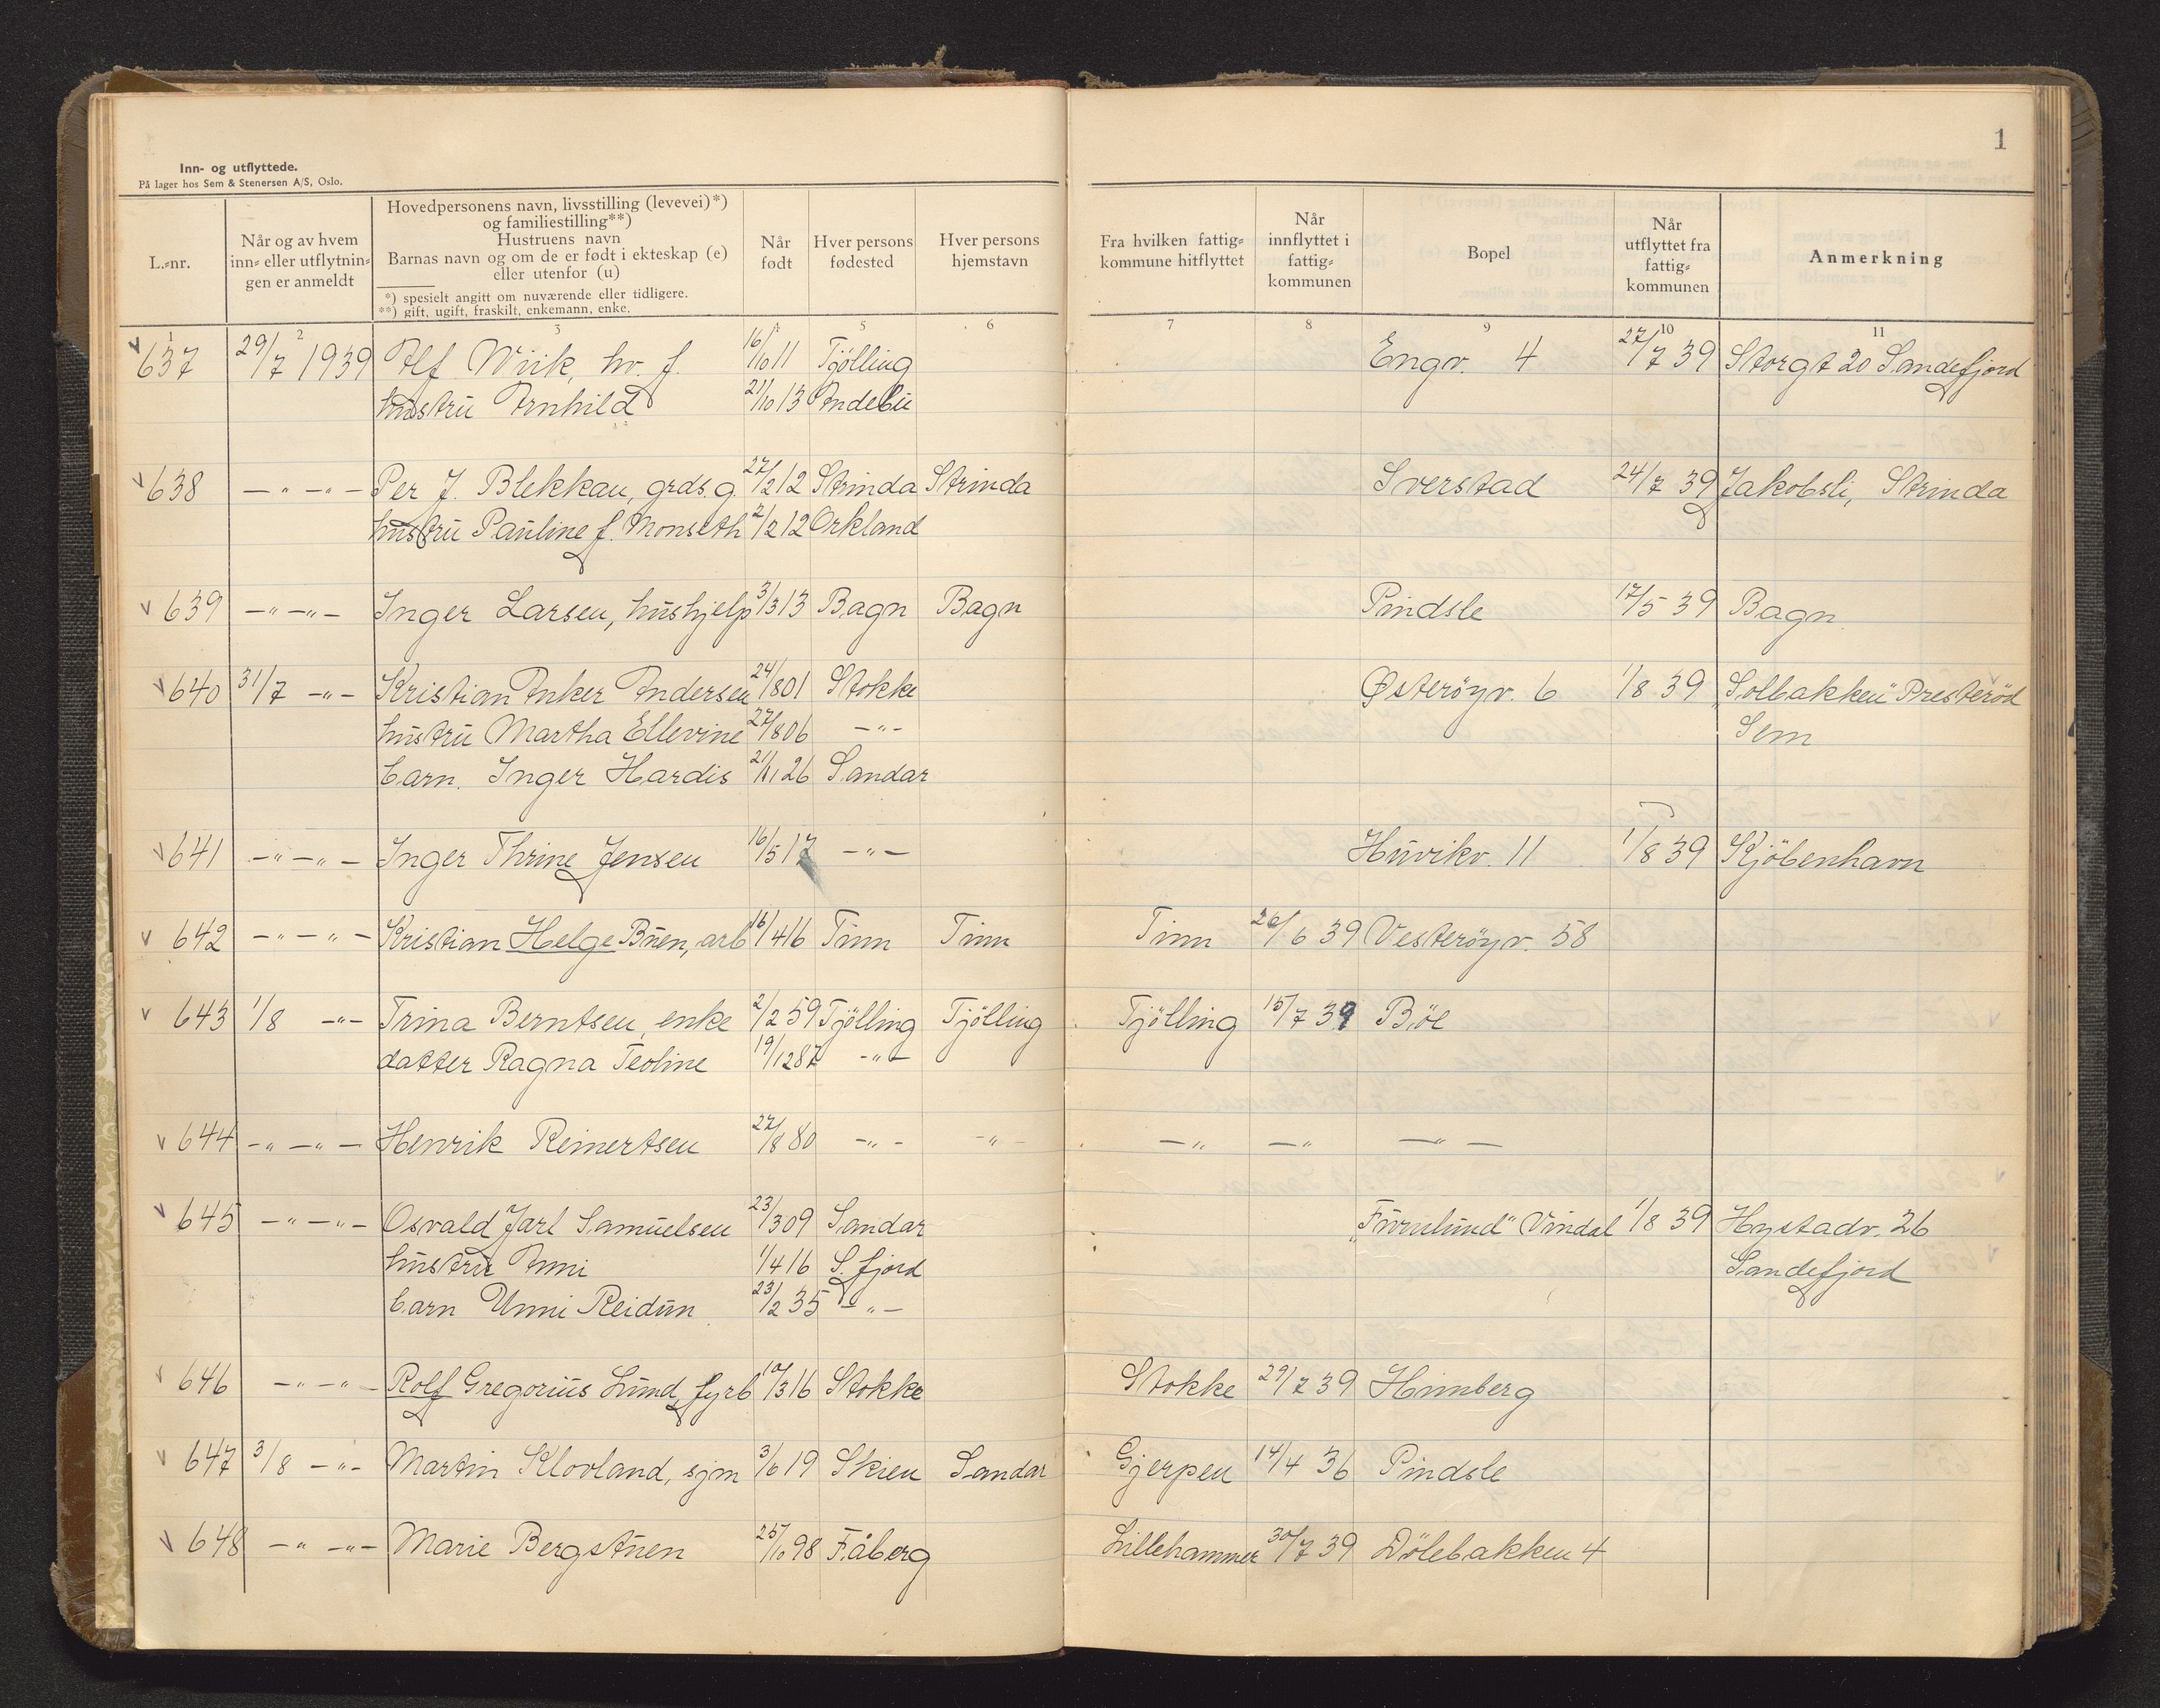 Inn- og utflyttede.
På lager hos Sem & Stenersen A/S, Oslo.
1
L.-nr.
Når og av hvem inn- eller utflytningen er anmeldt
Hovedpersonens navn, livsstilling (levevei)*)
og familiestilling**)
Hustruens navn
Barnas navn og om de er født i ekteskap (e)
eller utenfor (u)
*) spesielt angitt om nuværende eller tidligere.
**) gift, ugift, fraskilt, enkemann, enke.
Når født
Hver persons fødested
Hver persons hjemstavn
Fra hvilken fattigkommune hitflyttet
Når innflyttet i fattigkommunen
Bopel
Når utflyttet fra fattigkommunen
Anmerkning
1 2 3 4 5 6 7 8 9 10 11
637 29/7 1939 Alf Wiik, hv. f. 16/10 11 Tjölling Engv. 4 27/7 39 Storgt 20 Sandefjord
hustru Arnhild 21/10 13 Andebu
638 -"- -"- Per J. Blekkan, grds.g. 27/2 12 Strinda Strinda Sverstad 24/7 39 Jakobsli, Strinda
hustru Pauline f. Monseth 2/2 12 Orkland
639 -"- -"- Inger Larsen, hushjelp 3/3 13 Bagn Bagn Pindsle 17/5 39 Bagn
640 31/7 -"- Kristian Anker Andersen 24/8 01 Stokke Østeröyv. 6 1/8 39 "Solbakken" Presteröd
hustru Martha Ellevine 27/8 06 -"- Sem
barn. Inger Hardis 21/11 26 Sandar
641 -"- -"- Inger Thrine Jensen 16/5 17 -"- Huvikv. 11 1/8 39 Kjöbenhavn
642 -"- -"- Kristian Helge Buen, arb 16/4 16 Tinn Tinn Tinn 26/6 39 Vesteröyv. 58
643 1/8 -"- Trina Berntsen, enke 2/2 59 Tjölling Tjölling Tjölling 15/7 39 Böe
datter Ragna Teoline 19/12 87 -"-
644 -"- -"- Henrik Reinertsen 27/8 80 -"- -"- -"- -"- -"-
645 -"- -"- Osvald Jarl Samuelsen 23/3 09 Sandar "Furulund" Vindal 1/8 39 Hystadv. 26
hustru Anni 1/4 16 S. fjord Sandefjord
barn Unni Reidun 23/2 35 -"-
646 -"- -"- Rolf Gregorius Lund, fyrb 10/3 16 Stokke Stokke 29/7 39 Himberg
647 3/8 -"- Martin Klovland, sjm 3/6 19 Skien Sandar Gjerpen 14/4 36 Pindsle
648 -"- -"- Marie Bergstuen 25/10 98 Fåberg Lillehammer 30/7 39 Dölebakken 4